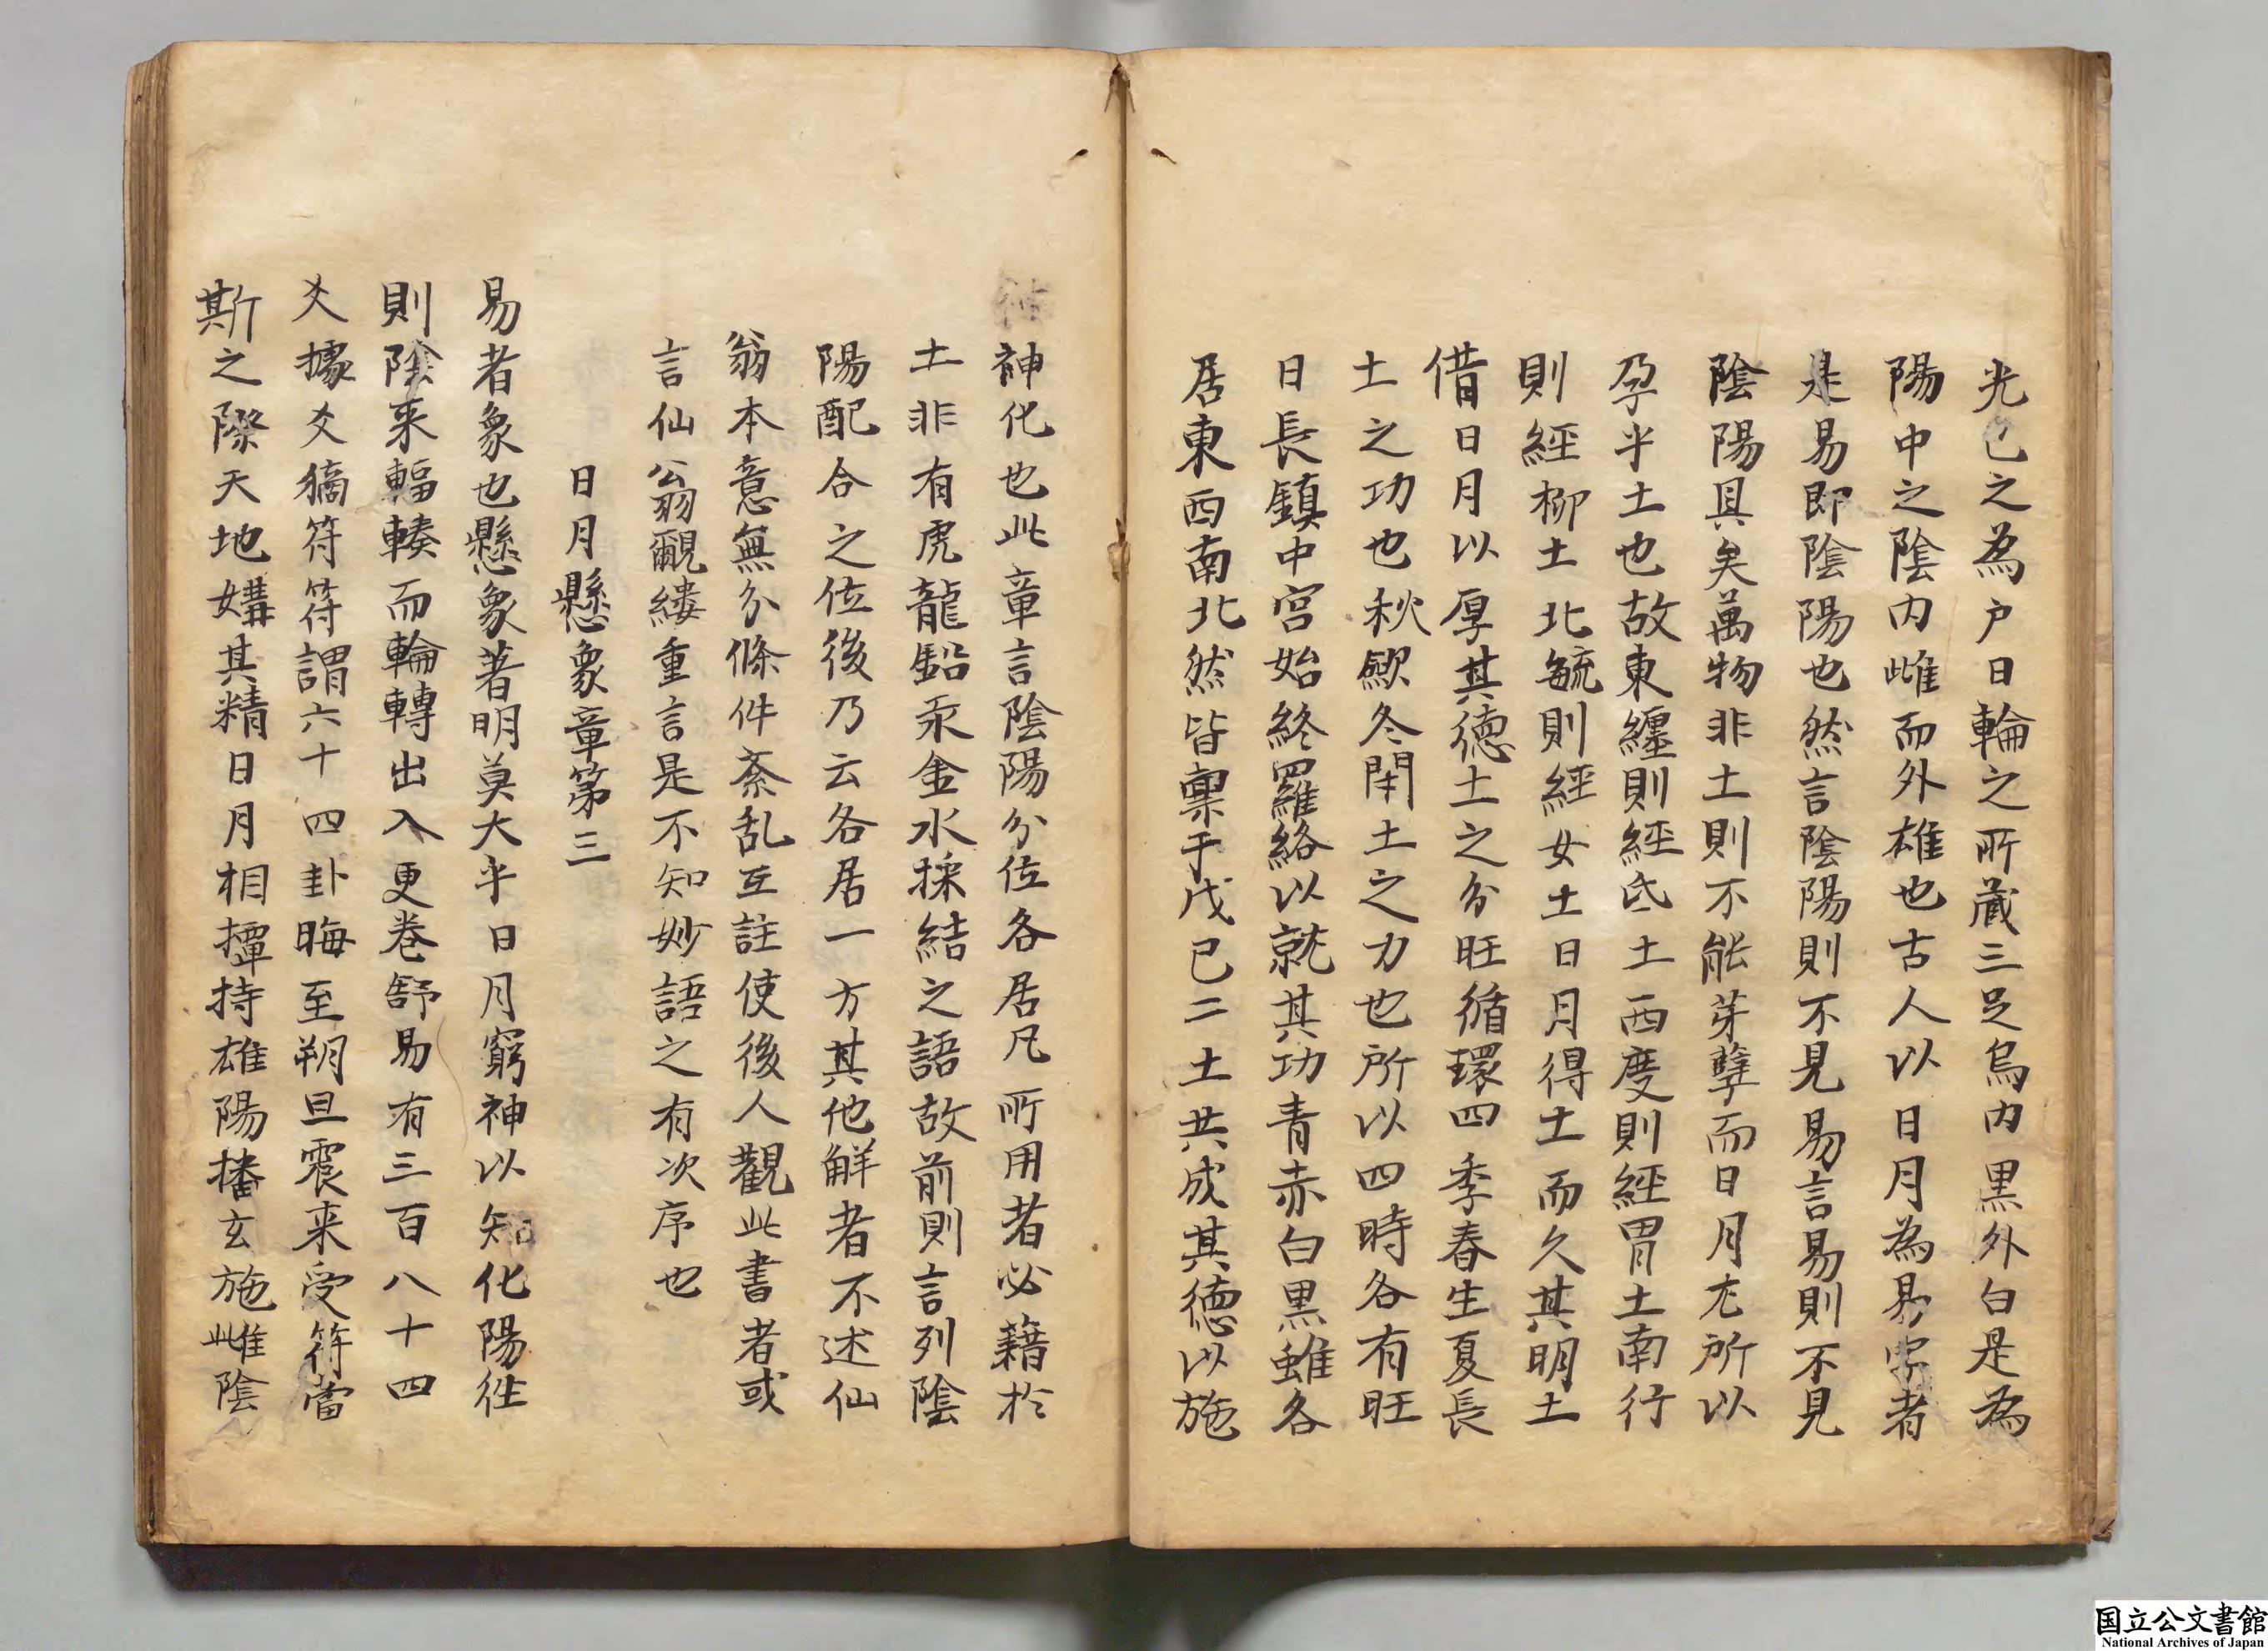 光色之為户日輪之所藏三足烏内黒外白是為
陽中之陰内雌而外雄也古人以日月為易字者
是易即陰陽也然言陰陽則不見易言易則不見
陰陽具矣萬物非土則不能芽孽而日月尤所以
孕乎土也故東纏則經氐土西度則經胃土南行
則經柳土北毓則經女土日月得土而久其明土
借日月以厚其德土之分旺循環四季春生夏長
土之功也秋歛冬閇土之力也所以四時各有旺
日長鎮中宮始終羅絡以就其功青赤白黒雖各
居東西南北然皆稟于戊己二土共成其德以施
神化也此章言陰陽分位各居凡所用者必籍於
土非有虎龍鉛汞金水採結之語故前則言列陰
陽配合之位後乃云各居一方其他解者不述仙
翁本意無分條件紊乱互註使後人觀此書者或
言仙翁覼縷重言是不知妙語之有次序也
日月懸象章第三
易者象也懸象著明莫大乎日月窮神以知化陽徃
則陰来輻輳而輪轉出入更巻舒易有三百八十四
爻據爻摘符符謂六十四卦晦至朔旦震来受符當
斯之際天地媾其精日月相撢持雄陽播玄施雌陰
国立公文書館
National Archives of Japan